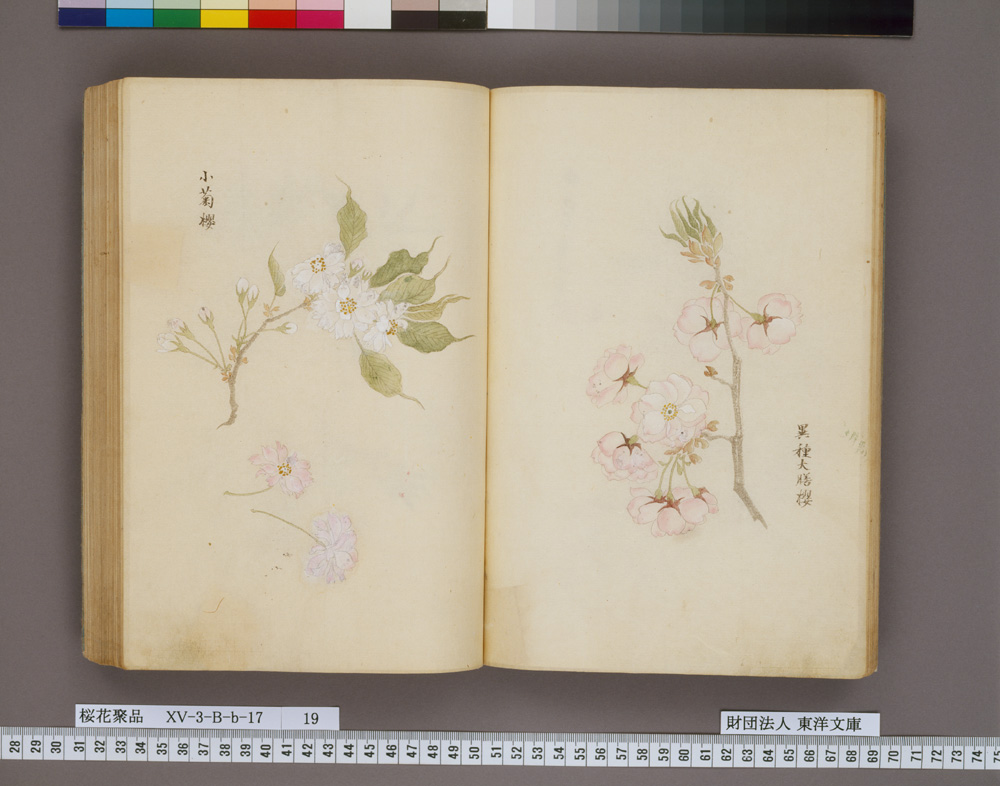 小菊櫻
異種大膳櫻
桜花聚品 XV-3-B-b-17 19
財団法人 東洋文庫
28 29 30 31 32 33 34 35 36 37 38 39 40 41 42 43 44 45 46 47 48 49 50 51 52 53 54 55 56 57 58 59 60 61 62 63 64 65 66 67 68 69 70 71 72 73 74 75